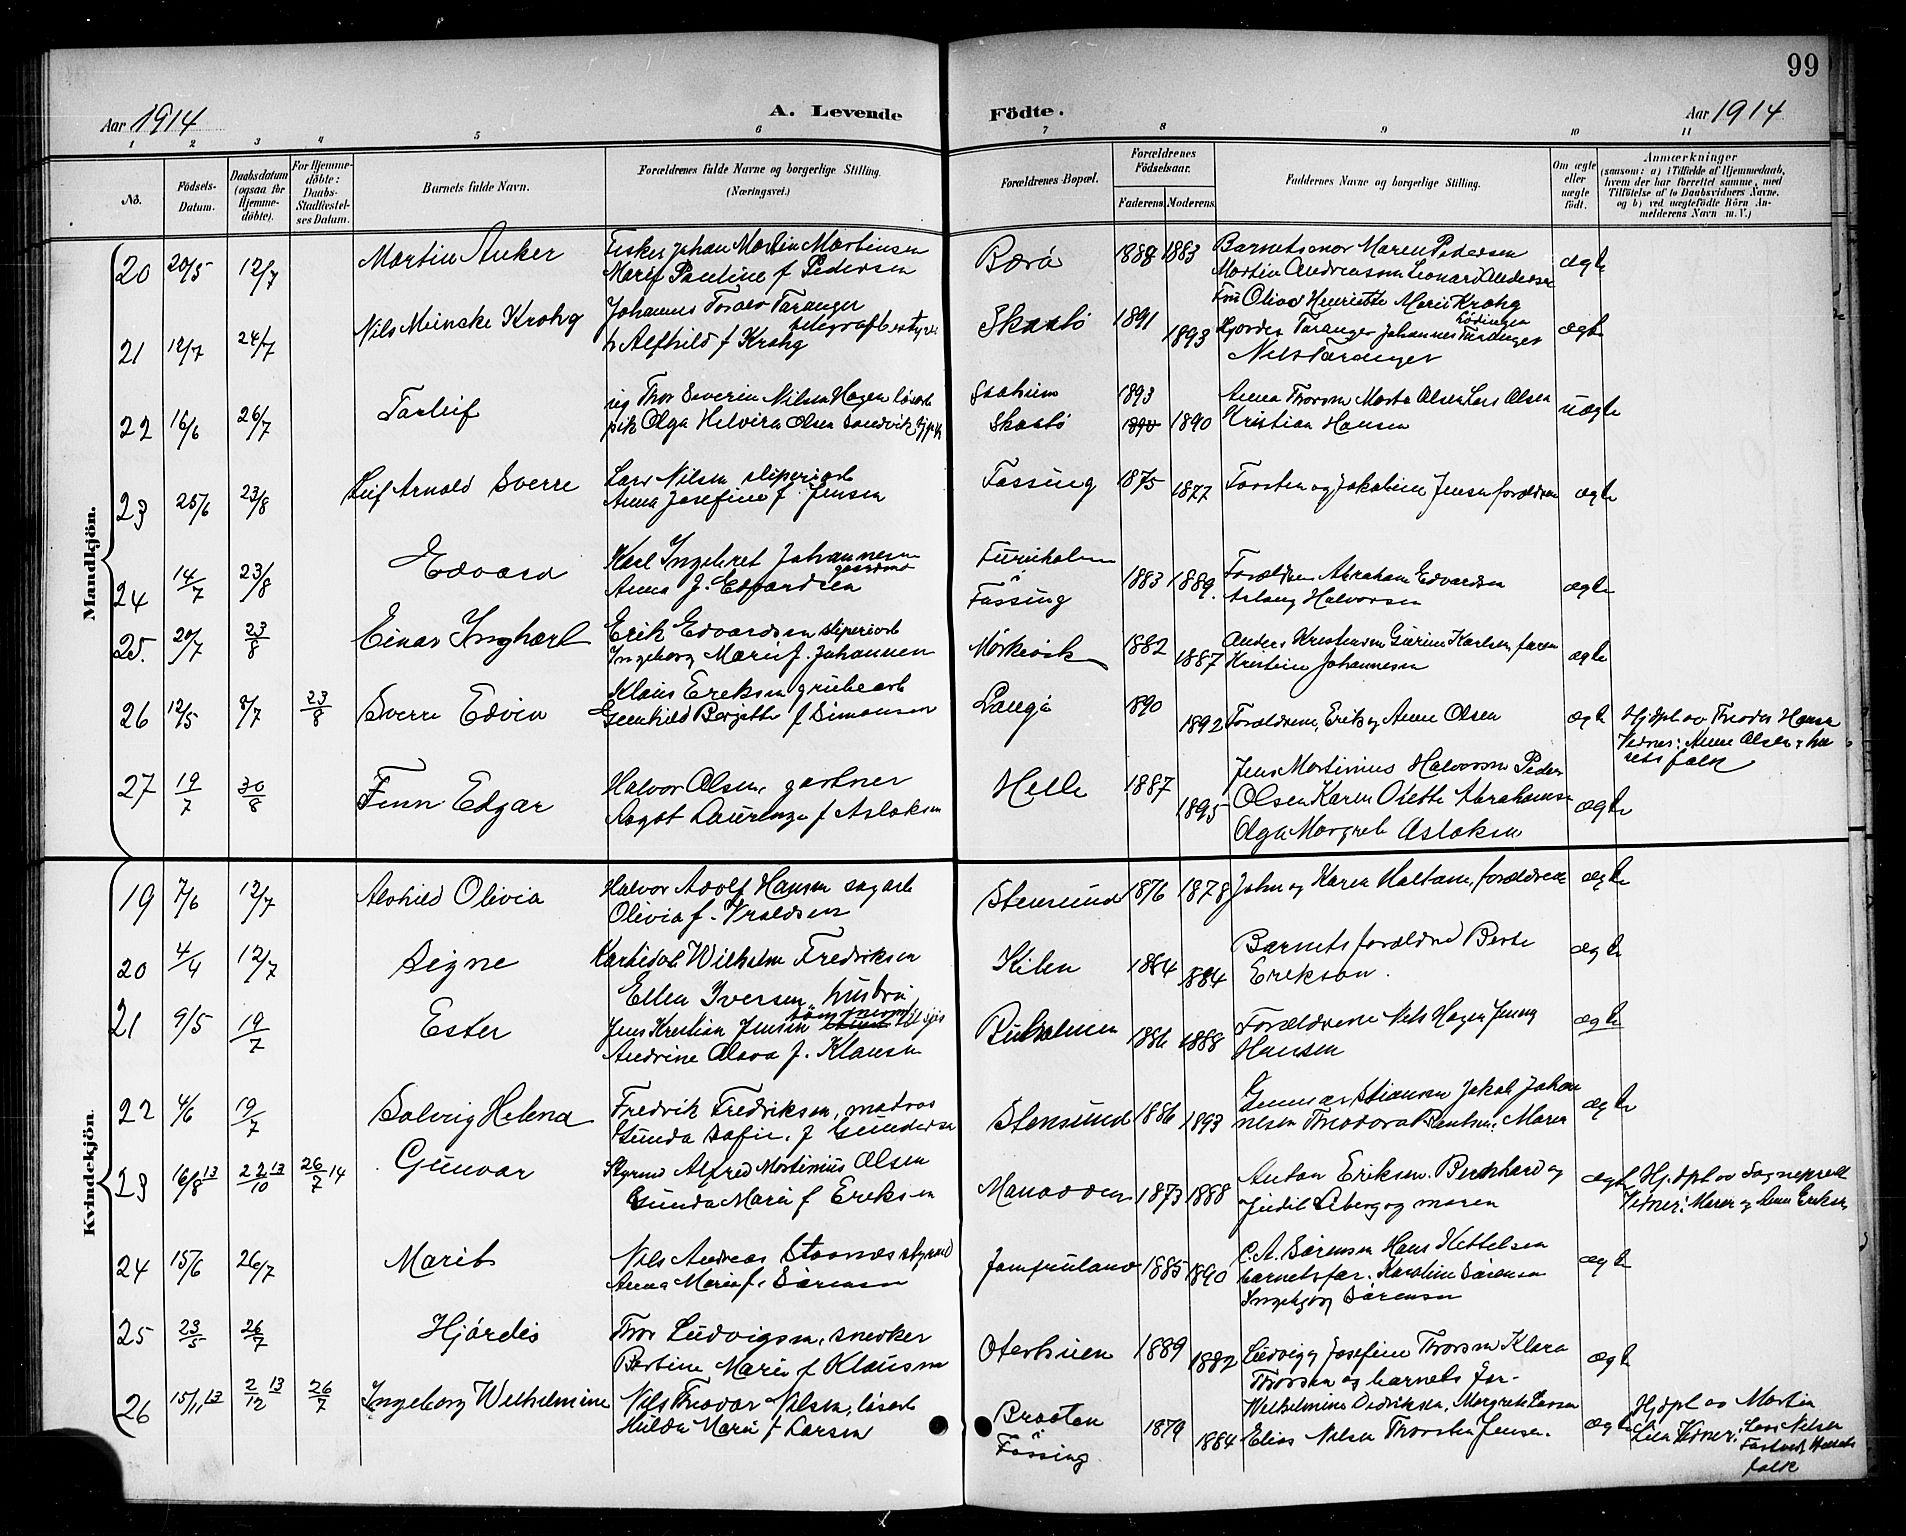 99
Aar 1914
A. Levende
Födte.
Aar 1914
1 2 3 4 5 6 7 8 9 10 11
No.
Födsels-Datum.
Daabsdatum (ogsaa for Hjemme-döbte).
For Hjemme-döbte: Daabs-Stadfæstel-ses Datum.
Barnets fulde Navn.
Forældrenes fulde Navne og borgerlige Stilling. (Næringsvei.)
Forældrenes Bopæl.
Forældrenes Födselsaar.
Faderens. Moderens.
Faddernes Navne og borgerlige Stilling.
Om ægte eller uægte født.
Anmærkninger
(saasom: a) i Tilfælde af Hjemmedaab, hvem der har forrettet samme, med Tilföielse af to Daabsvidners Navne, og b) ved uægtefödte Börn An-melderens Navn m. V.)
Mandkjön.
20 20/5 12/7 Martin Anker
Fisker Johan Martin Martinsen
Marie Pauline f Pedersen
Bærö 1888 1883
Barnets mor Maren Pedersen
Martin Andreassen Leonard Andersen
ægte
21 12/7 24/7 Nils Meinske Krohg
Johannes Toralv Taranger
telegrafbestyrer
h Alfhild f Krohg
Skaatö 1891 1893
Fru Oliva Henriette Marie Krohg
Lödingen
Hjördis Taranger Johannes Taranger
Nils Taranger
ægte
22 16/6 26/7 Torleif
ug Thor Severin Nilsen Hagen lösarb
pik Olga Helvira Olsen Sandvik
Skaatö 1893
1890 1890
Anna Thorsen Marta Olsen Lars Olsen
Kristian Hansen
uægte
23 25/6 23/8 Leif Arnold Sverre
Lars Nilsen sliperiarb
Anna Josefine f. Jensen
Fossing 1875 1877
Torsten og Jakobine Jensen forældrene
ægte
24 14/7 23/8 Edvard
Karl Ingebret Johannesen
gaardmd
Anna f. Edvardsen
Furuholmen
Fössing 1883 1889.
Forældrene Abraham Edvardsen
Aslaug Halvorsen
ægte
25. 20/7 23/8 Einar Ingharl
Erik Edvardsen sliperiarb
Ingeborg Marie f. Johannsen
Mörkevik 1882 1887
Anders Kristensen Gurine Karlsen faren
Kristine Johannesen
ægte
26 12/5 8/7 23/8 Sverre Edvin
Klaus Eriksen grubearb
Gunhild Bergette f Simonsen
Langö 1890 1892
Forældrene, Erik og Anne Olsen
ægte
Hjdpt av Theodor Hansen
Vidner: Anne Olsen + hu
sets folk
27 19/7 30/8 Finn Edgar
Halvor Olsen, gartner
Dagot Laurenze f Aslaksen
Helle 1887 1895
Jens Martinius Halvorsen Peder
Olsen Karen Osette Abrahamse
Olga Margrete Aslaksen
ægte
Kvindekjön.
19 7/6 12/7 Alvhild Olivia
Halvor Adolf Hansen sagarb
Olivia f. Vraldsen
Stensund 1876 1878
John og Karen Haltam, forældrene
ægte
20 4/4 12/7 Signe
Karbidarb Wilhelm Fredriksen
Ellen Iversen, hustru
Kilen 1884 1884
Barnets forældre Berte
Eriksen.
ægte
21 9/5 19/7 Ester
Jens Kristian Jensen tömmermd
Andrine Olava f. Klausen
1886 1888
Forældrene Nils Hagen Jenny
Hansen
ægte
22 4/6 19/7 Solveig Helena
Fredrik Fredriksen, matros
Gunda Sofie f Gundersen
Stensund 1886 1893
Gunnar Stiansen Jakob Johan
nesen Theodora Bentsen, Maren
ægte
23 16/8 13 22/10 13 26/7 14 Gunvor
Styrmd Alfred Martinius Olsen
Gunda Marie f Eriksen
Manodden 1873 1888
Anton Eriksen. Bernhard og
Judit Aberg og moren
ægte
Hj.dpt av Sognepresten
Vidner: Maren og Anne Eriksen
24 15/6 26/7 Marit
Nils Andreas Stornes styrmd
Anna Marie f. Sörensen
Jomfruland 1885 1890
C.A. Sörensen Hans Kittelsen
barnets far. Karoline Sörensen
Ingeborg Sörensen
ægte
25 23/5 26/7 Hjördis
Thor Ludvigsen, snedker
Bertine Marie f Klausen
Oterhuien 1889 1882
Ludvig og Josefine Thorsen Klara
Thorsen og barnets far.
ægte
26 15/11 13 2/12 13 26/7 Ingeborg Wilhelmine
Nils Theodor Nilsen, lösarb
Hulda Marie f Larsen
Braaten
Fössing 1879 1884
Wilhelmine Didriksen, Margrete Larsen
Elias Nilsen Thorsten Jensen.
ægte
Hjdpt av Martin
Lien Vidner: Lars Nilsen
folk